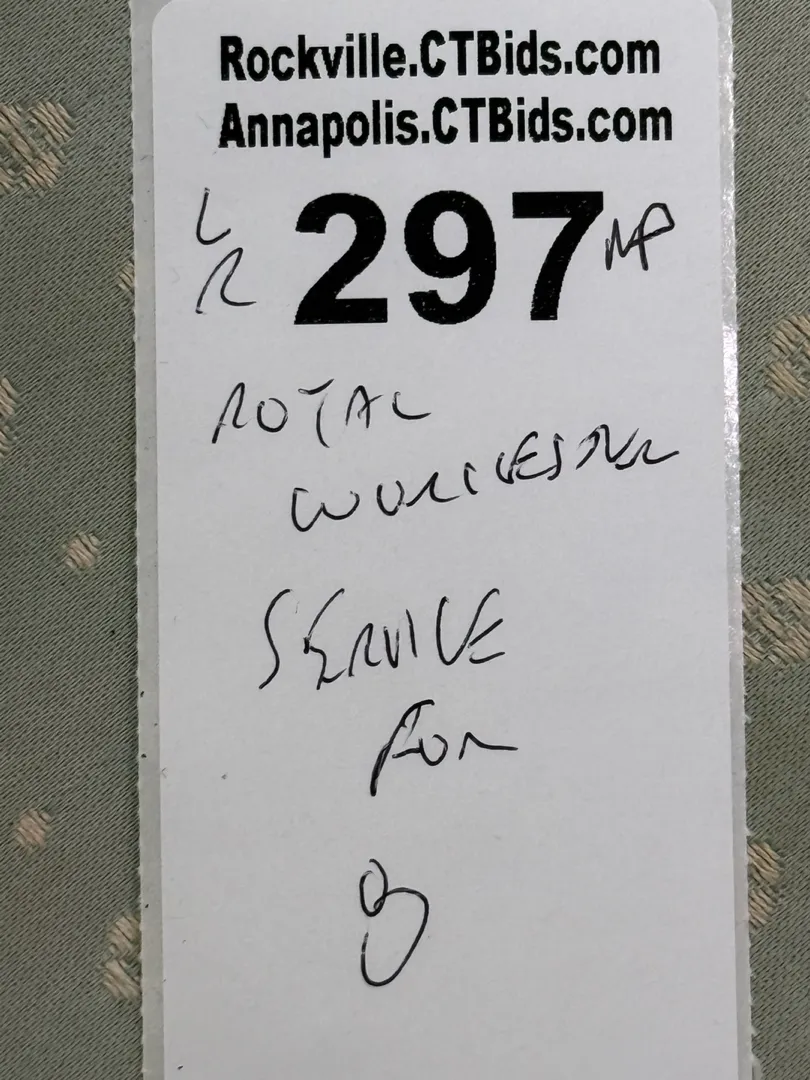 Rockville.CTBids.com
Annapolis.CTBids.com
L
R
297 MP
ROYAL
WORCESTER
SERVICE
FOR
8